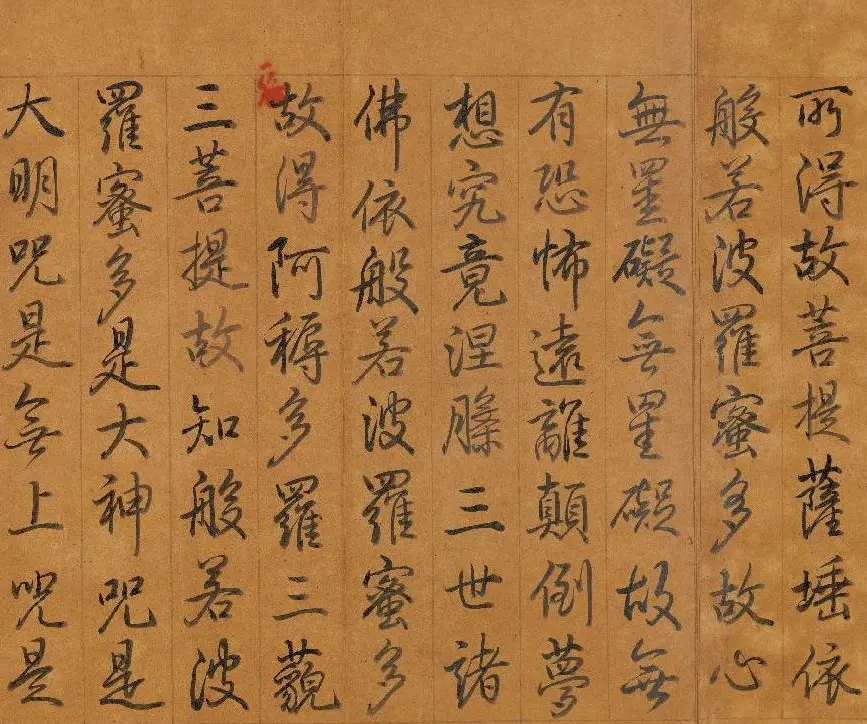 所得故菩提薩埵依
般若波羅蜜多故心
無罣礙無罣礙故無
有恐怖遠離顛倒夢
想究竟涅槃三世諸
佛依般若波羅蜜多
故得阿耨多羅三藐
三菩提故知般若波
羅蜜多是大神咒是
大明咒是無上咒是